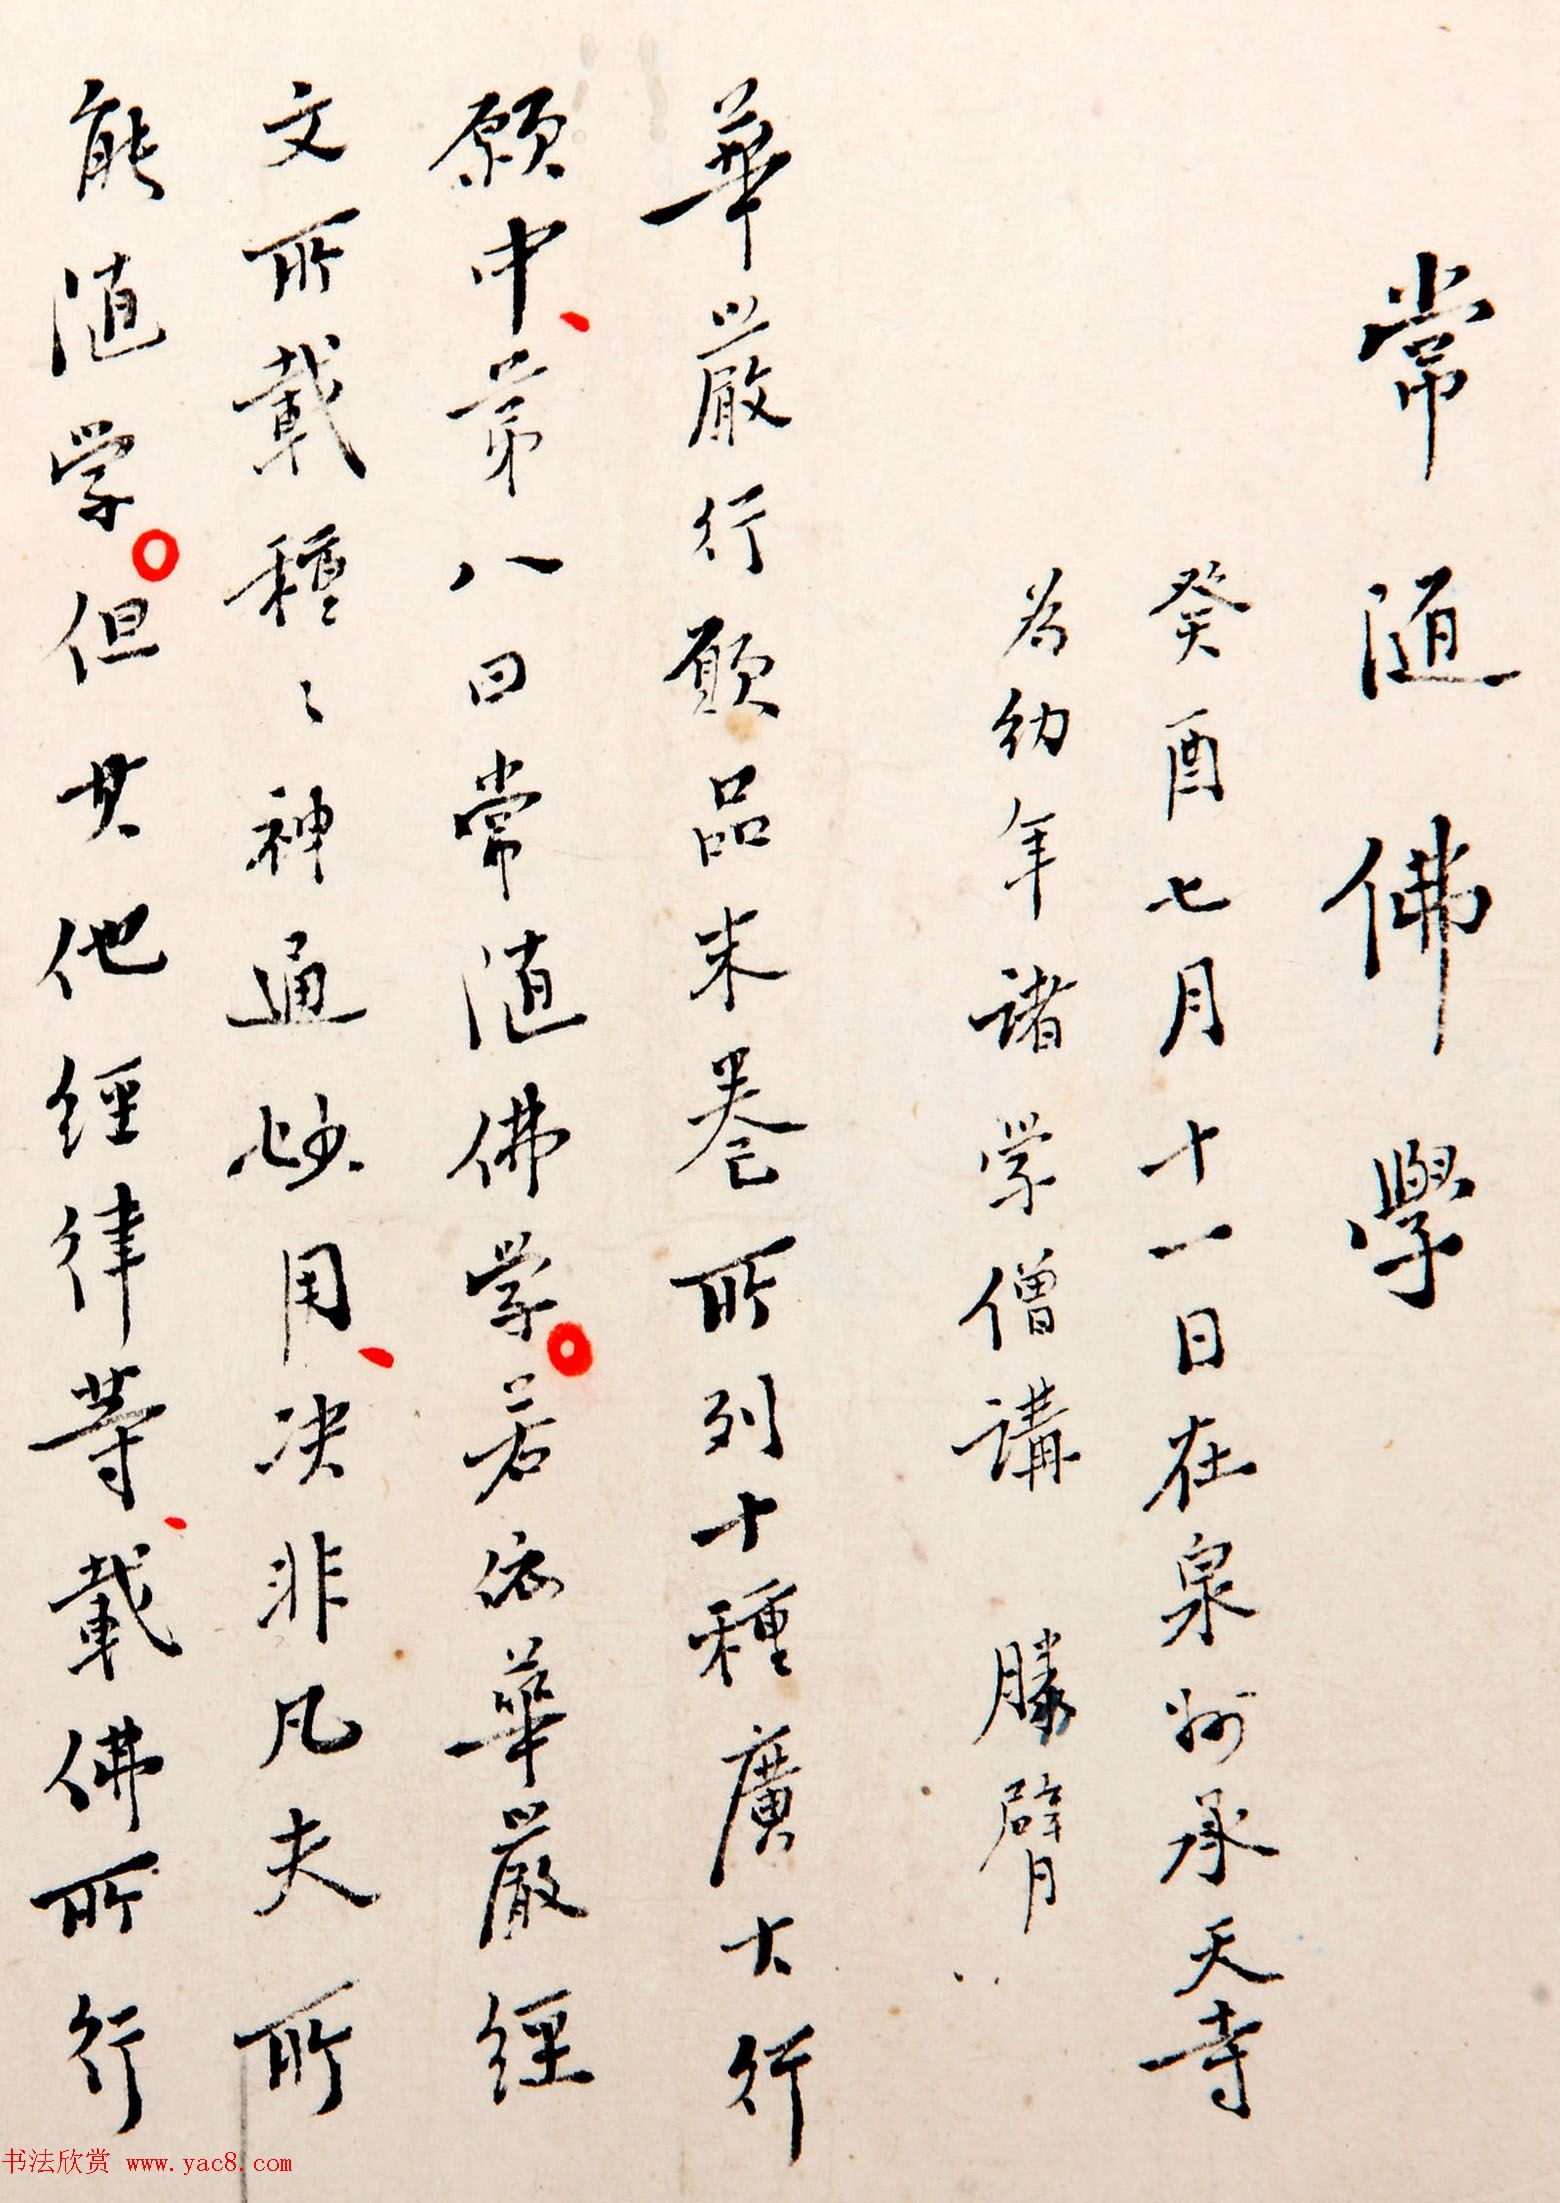 常随佛學
癸酉七月十一日在泉州承天寺
为幼年诸学僧講 勝臂
華嚴行願品末卷所列十種廣大行
願中、第八曰常随佛学。若依華嚴經
文所載種〻神通妙用、决非凡夫所
能随学。但其他經律等、載佛所行
书法欣赏 www.yac8.com